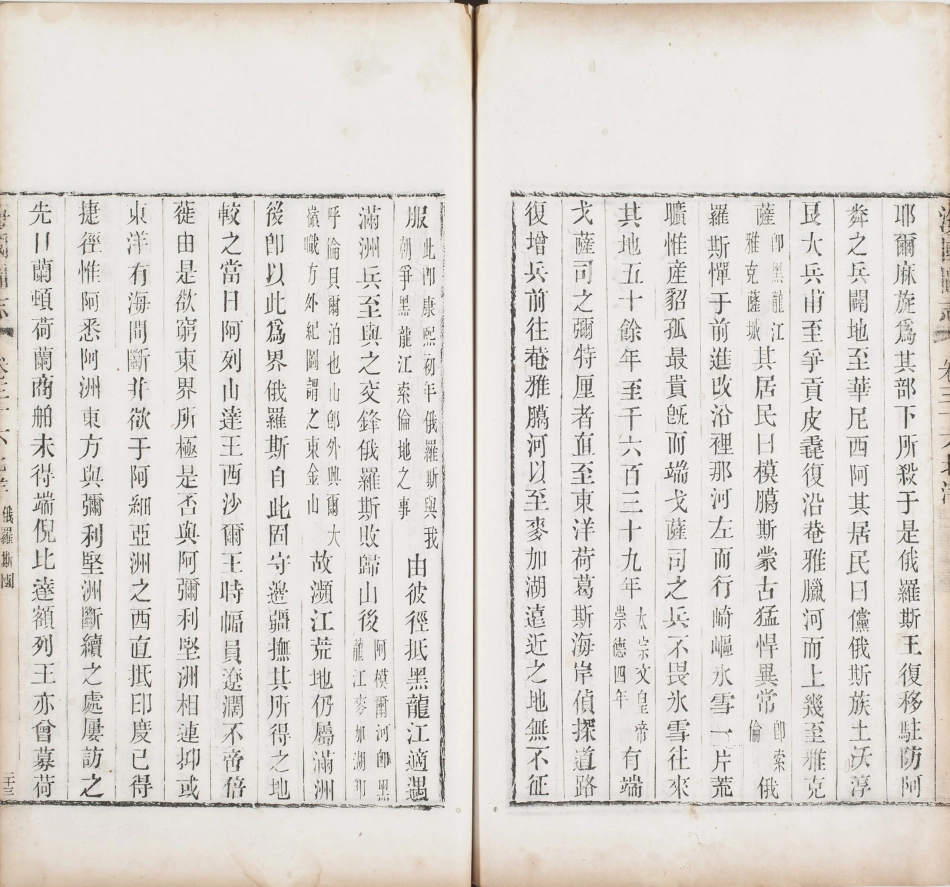 耶爾麻旋爲其部下所殺于是俄羅斯王復移駐防阿
粦之兵闢地至華尼西阿其居民曰儻俄斯族土沃淳
艮大兵甫至爭貢皮毳復沿菴雅臘河而上幾至雅克
薩卽黑龍江雅克薩城其居民曰模臈斯蒙古猛悍異常卽索倫俄
羅斯憚于前進改沿裡那河左而行崎嶇氷雪一片荒
曠惟産貂狐最貴旣而端戈薩司之兵不畏氷雪往來
其地五十餘年至千六百三十九年太宗文皇帝崇德四年有端
戈薩司之彌特厘者直至東洋荷葛斯海岸偵探道路
復增兵前往菴雅臈河以至麥加湖遠近之地無不征
服此卽康熙初年俄羅斯與我朝爭黑龍江索倫地之事由彼徑抵黑龍江適遇
滿洲兵至與之交鋒俄羅斯敗歸山後阿模爾河卽黑龍江麥加湖卽
呼倫貝爾泊也山卽外興爾大嶺職方外紀圖謂之東金山故瀕江荒地仍屬滿洲
後卽以此爲界俄羅斯自此固守邊疆撫其所得之地
較之當日阿列山達王西沙爾王時幅員遼濶不啻倍
蓰由是欲窮東界所極是否與阿彌利堅洲相連抑或
東洋有海間斷幷欲于阿細亞洲之西直抵印度已得
捷徑惟阿悉阿洲東方與彌利堅洲斷續之處屢訪之
先日蘭頓荷蘭商舶未得端倪比達額列王亦曾募荷
俄羅斯國
二十三